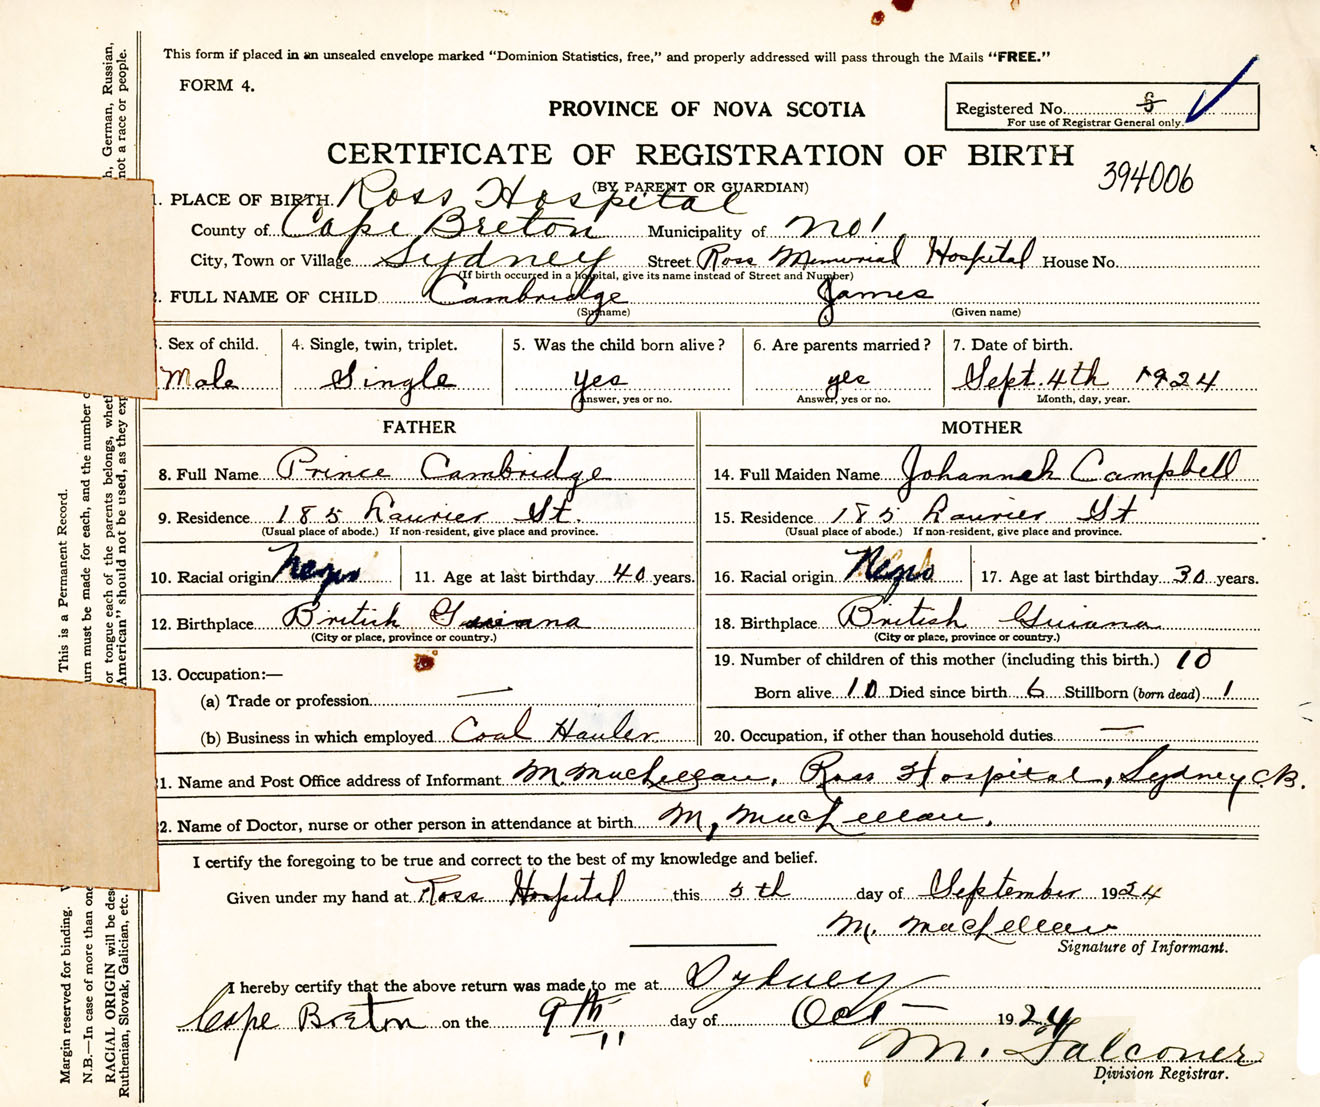 This form if placed in an unsealed envelope marked "Dominion Statistics, free," and properly addressed will pass through the Mails "FREE."
FORM 4.
PROVINCE OF NOVA SCOTIA
Registered No. 5
For use of Registrar General only.
CERTIFICATE OF REGISTRATION OF BIRTH
394006
(BY PARENT OR GUARDIAN)
1. PLACE OF BIRTH. Ross Hospital
County of Cape Breton Municipality of No 1
City, Town or Village Sydney Street Ross Memorial Hospital House No.
(If birth occurred in a hospital, give its name instead of Street and Number)
2. FULL NAME OF CHILD Cambridge James
(Surname) (Given name)
3. Sex of child. 4. Single, twin, triplet. 5. Was the child born alive? 6. Are parents married? 7. Date of birth.
Male Single yes yes Sept. 4th 1924
Answer, yes or no. Answer, yes or no. Month, day, year.
FATHER MOTHER
8. Full Name Prince Cambridge 14. Full Maiden Name Johannah Campbell
9. Residence 185 Laurier St. 15. Residence 185 Laurier St
(Usual place of abode.) If non-resident, give place and province. (Usual place of abode.) If non-resident, give place and province.
10. Racial origin Negro 11. Age at last birthday 40 years. 16. Racial origin Negro 17. Age at last birthday 30 years.
12. Birthplace British Guiana 18. Birthplace British Guiana
(City or place, province or country.) (City or place, province or country.)
13. Occupation:— 19. Number of children of this mother (including this birth.) 10
(a) Trade or profession — Born alive 10 Died since birth 6 Stillborn (born dead) 1
(b) Business in which employed Coal Hauler 20. Occupation, if other than household duties —
21. Name and Post Office address of Informant M. MacLellan, Ross Hospital, Sydney C.B.
22. Name of Doctor, nurse or other person in attendance at birth M, MacLellan.
I certify the foregoing to be true and correct to the best of my knowledge and belief.
Given under my hand at Ross Hospital this 5th day of September 1924
M. MacLellan
Signature of Informant.
I hereby certify that the above return was made to me at Sydney
Cape Breton on the 9th day of Oct — 1924
M. Falconer
Division Registrar.
Margin reserved for binding. This is a Permanent Record.
N.B.—In case of more than one urn must be made for each, and the number
RACIAL ORIGIN will be des or tongue each of the parents belongs, h, German, Russian,
Ruthenian, Slovak, Galician, etc. American" should not be used, as they not a race or people.